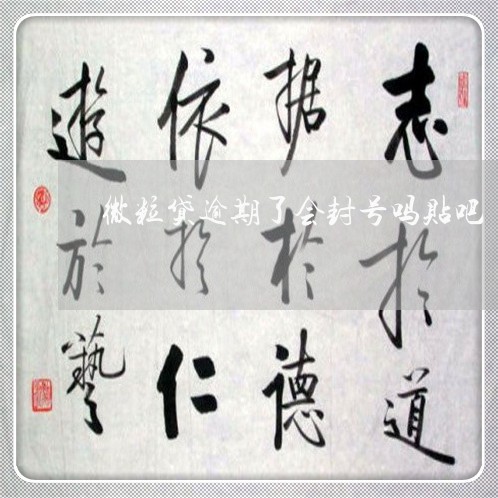 志扵道
据扵德
依扵仁
遊於藝
微粒贷逾期了会封号吗贴吧